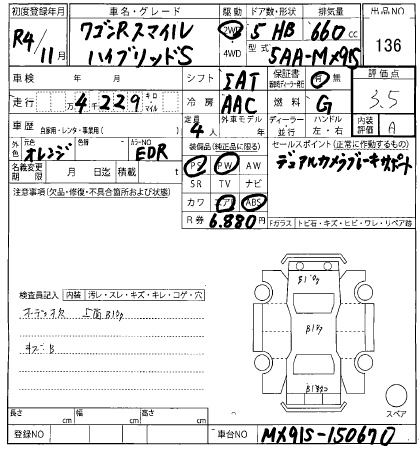 初度登録年月 車名・グレード 駆動 ドア数・形状 排気量 出品NO
R4/11月 ワゴンRスマイル ハイブリッドS 2WD 4WD 5 HB 660cc 136
型式 5AA-MX91S
車検 年 月 シフト IAT 保証書 有・無 評価点
走行 万 4千229 キロ・マイル 冷房 AAC 燃料 G 3.5
車歴 自家用・レンタ・事業用( ) 定員 4人 外車モデル 年 ディーラー・並行 ハンドル 左・右 内装評価 A
外色 元色 オレンジ 色替 カラーNO EDR 装備品(純正品に限る) セールスポイント(正常に動作するもの)
名義変更期限 月 日迄 積載 t PS PW AW デュアルカメラブレーキサポート
注意事項(欠品・修復・不具合箇所および状態) SR TV ナビ
カワ エアB ABS
R券 6,880円 Fガラス トビ石・キズ・ヒビ・ワレ・リペア跡
検査員記入 内装 汚レ・スレ・キズ・キレ・コゲ・穴
オーデッキ欠 上面B10g
キズB
長さ cm 幅 cm 高さ cm スペア
登録NO 車台NO MX91S-150670